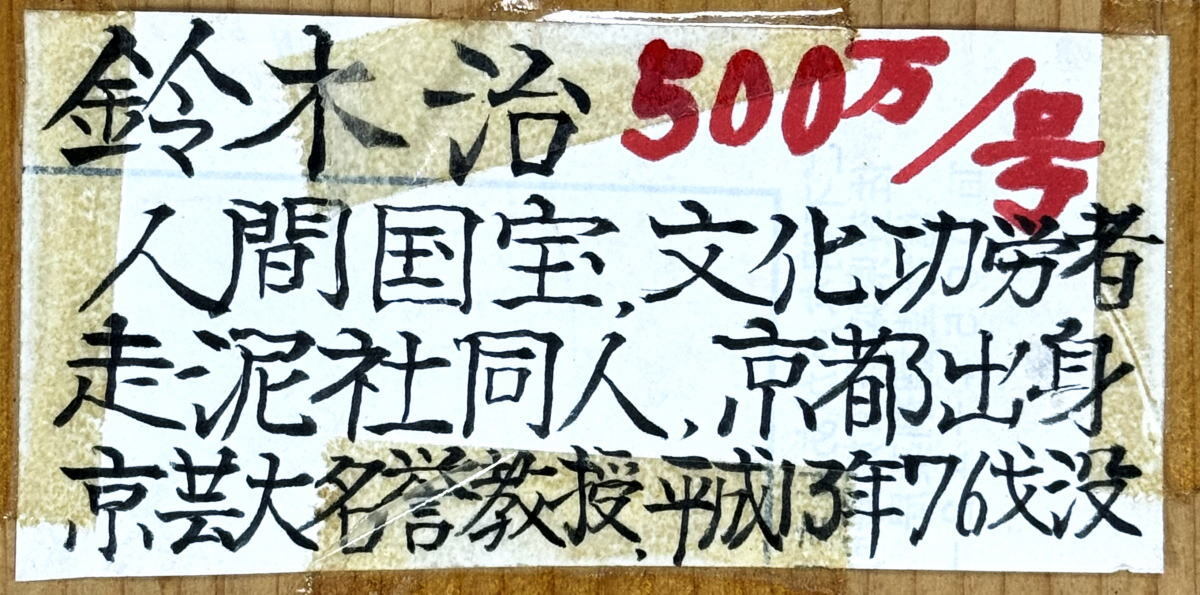 鈴木治 500万/号
人間国宝,文化功労者
走泥社同人,京都出身
京芸大名誉教授,平成13年76才没